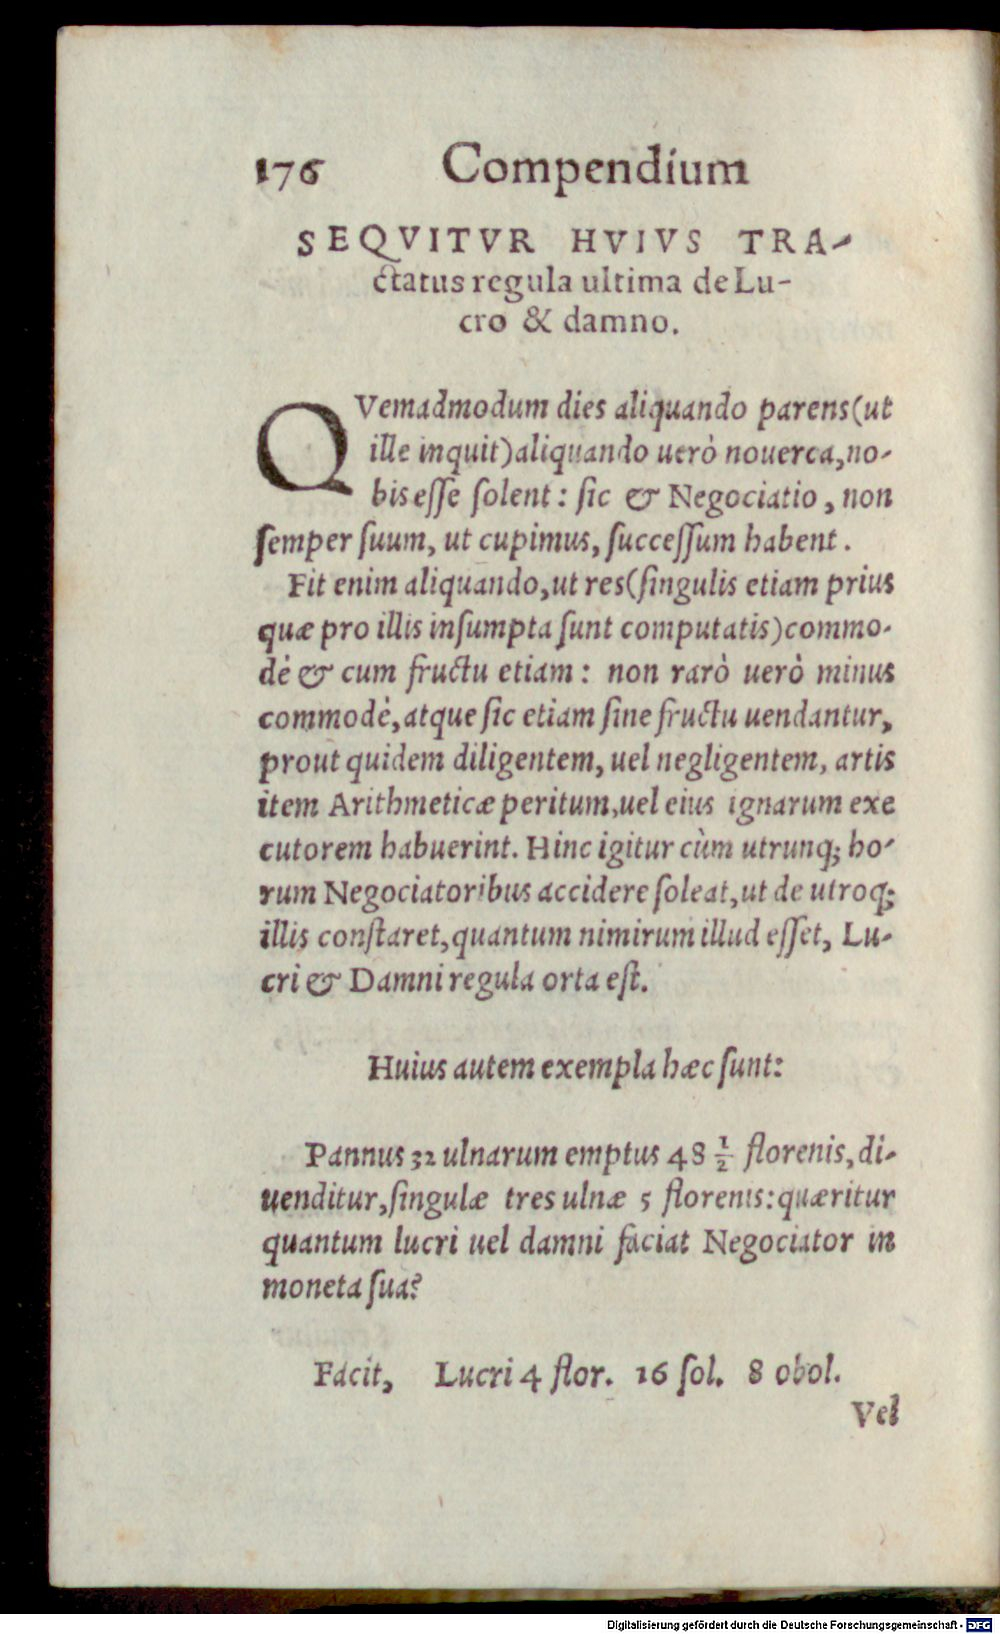 176 Compendium
SEQVITVR HVIVS TRA-
ctatus regula ultima de Lu-
cro & damno.
QVemadmodum dies aliquando parens(ut
ille inquit)aliquando uerò nouerca,no-
bis esse solent: sic & Negociatio, non
semper suum, ut cupimus, successum habent.
Fit enim aliquando,ut res(singulis etiam prius
quæ pro illis insumpta sunt computatis)commo-
dè & cum fructu etiam: non rarò uerò minus
commodè,atque sic etiam sine fructu uendantur,
prout quidem diligentem, uel negligentem, artis
item Arithmeticæ peritum,uel eius ignarum exe
cutorem habuerint. Hinc igitur cùm utrunq; ho-
rum Negociatoribus accidere soleat,ut de utroq;
illis constaret,quantum nimirum illud esset, Lu-
cri & Damni regula orta est.
Huius autem exempla hæc sunt:
Pannus 32 ulnarum emptus 48 1/2 florenis,di-
uenditur,singulæ tres ulnæ 5 florenis:quæritur
quantum lucri uel damni faciat Negociator in
moneta sua?
Facit, Lucri 4 flor. 16 sol. 8 obol.
Vel
Digitalisierung gefördert durch die Deutsche Forschungsgemeinschaft - DFG